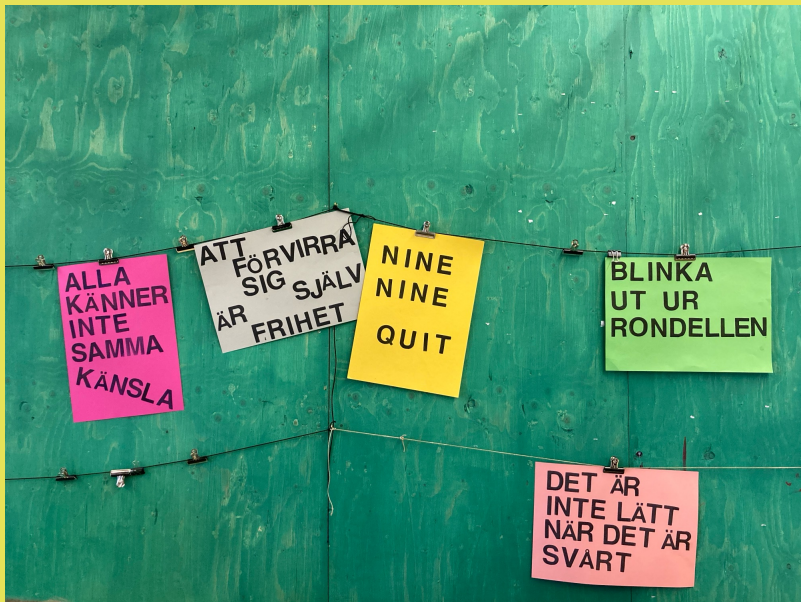 ALLA
KÄNNER
INTE
SAMMA
KÄNSLA
ATT
FÖRVIRRA
SIG SJÄLV
ÄR FRIHET
NINE
NINE
QUIT
BLINKA
UT UR
RONDELLEN
DET ÄR
INTE LÄTT
NÄR DET ÄR
SVÅRT